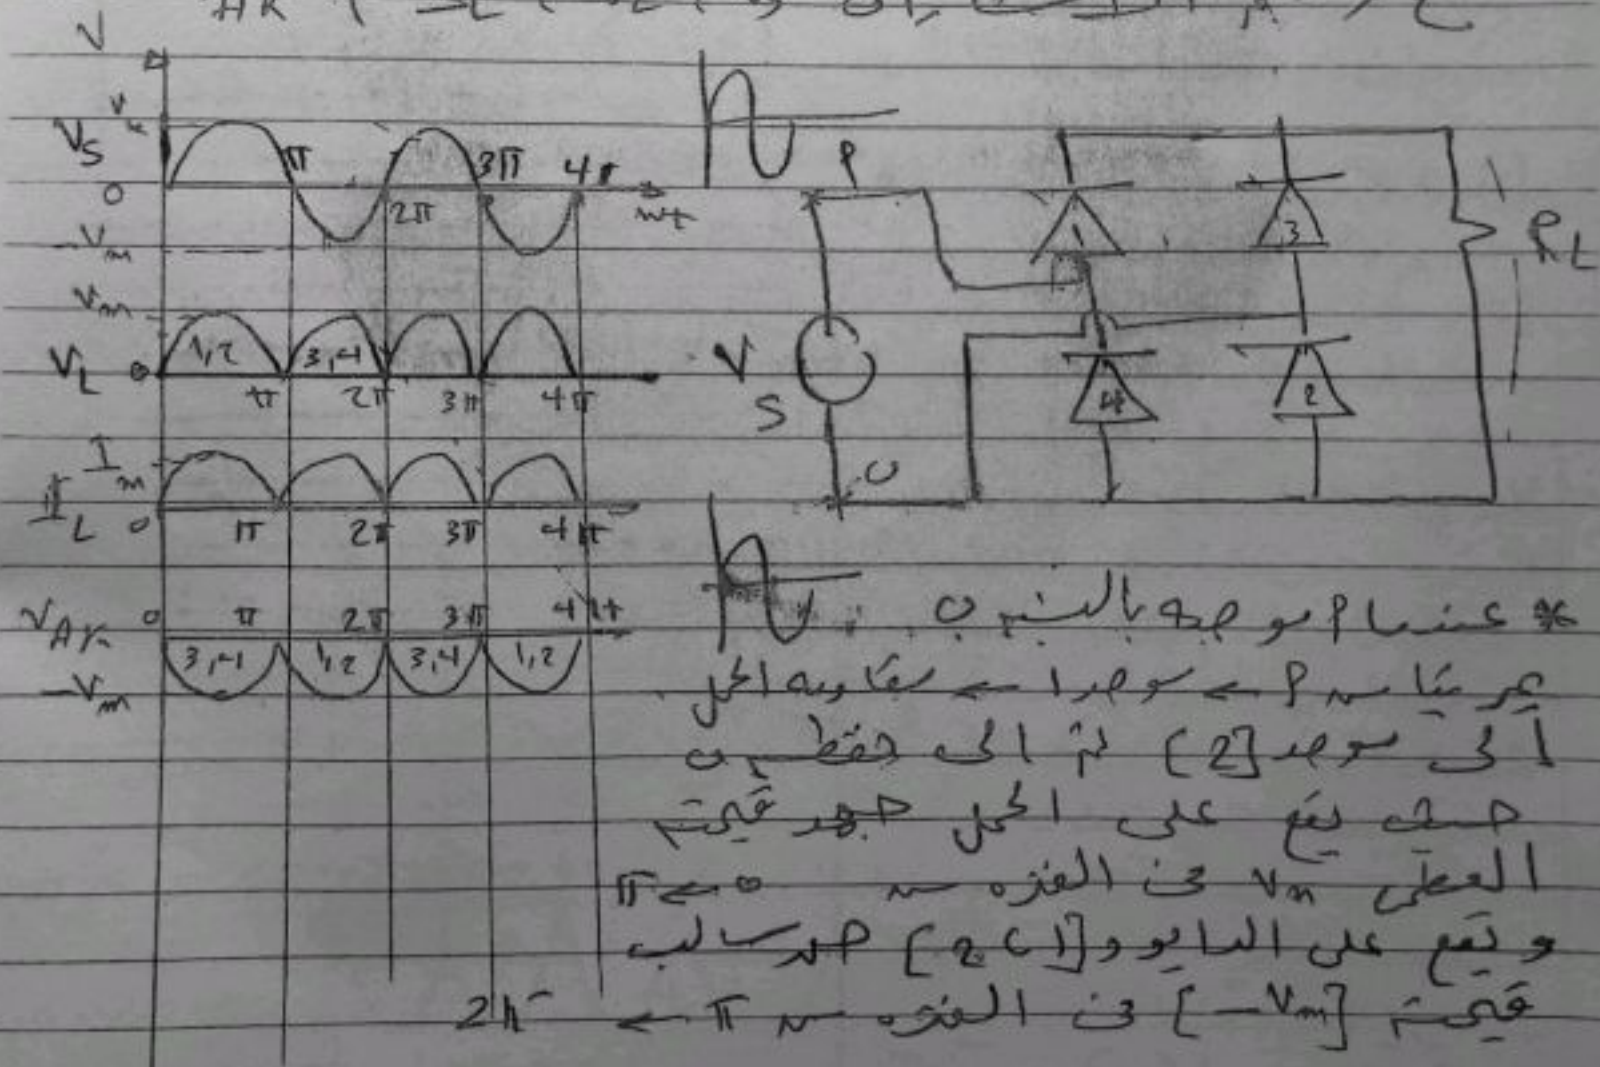 V
Vs
0
-Vm
π
2π
3π
4π
wt
Vm
VL
0
1,2
3,4
π
2π
3π
4π
Im
IL
0
π
2π
3π
4π
VAK
0
π
2π
3π
4π
3,4
1,2
3,4
1,2
-Vm
P
V
S
1
3
4
2
RL
* عندما P موجبه بالنسبه
P ← موحد 1 ← مقاومه الحمل
الى موحد [2] ثم الى
حيث يقع على الحمل جهد قيمته
العظمى Vm في الفتره من 0 ← π
و تقع على الدايود [1 ، 2] جهد سالب
قيمته [-Vm] في الفتره من π ← 2π